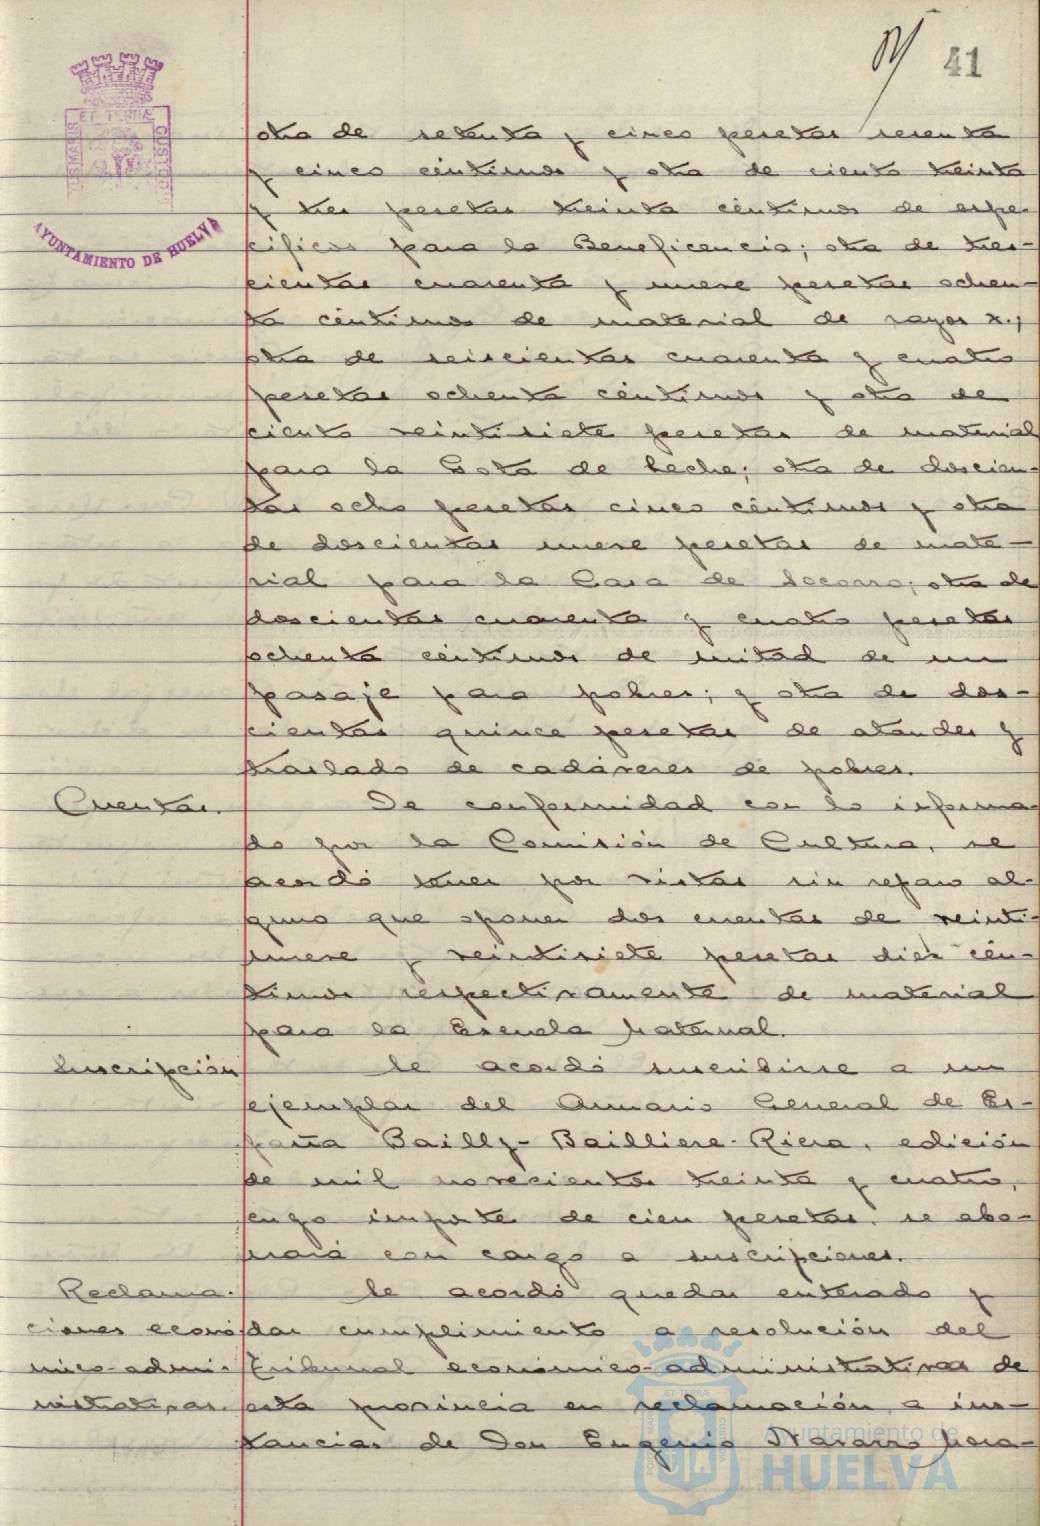 41
ET TERRÆ
CUSTO
AYUNTAMIENTO DE HUELVA
otra de setenta y cinco pesetas sesenta
y cinco céntimos y otra de ciento treinta
y tres pesetas treinta céntimos de espe-
cíficos para la Beneficencia; otra de tres-
cientas cuarenta y nueve pesetas ochen-
ta céntimos de material de rayos x.;
otra de seiscientas cuarenta y cuatro
pesetas ochenta céntimos y otra de
ciento veintisiete pesetas de material
para la Gota de Leche; otra de doscien-
tas ocho pesetas cinco céntimos y otra
de doscientas nueve pesetas de mate-
rial para la Casa de Socorro; otra de
doscientas cuarenta y cuatro pesetas
ochenta céntimos de mitad de un
pasaje para pobres; y otra de dos-
cientas quince pesetas de ataudes y
traslado de cadáveres de pobres.
Cuentas. De conformidad con lo informa-
do por la Comisión de Cultura, se
acordó tener por vistas sin reparo al-
guno que oponer dos cuentas de veinti-
nueve y veintisiete pesetas diez cén-
timos respectivamente de material
para la Escuela Maternal.
Suscripción Se acordó suscribirse a un
ejemplar del Anuario General de Es-
paña Bailly-Bailliere-Riera, edición
de mil novecientos treinta y cuatro,
cuyo importe de cien pesetas se abo-
nará con cargo a suscripciones.
Reclama- Se acordó quedar enterado y
ciones econó- dar cumplimiento a resolución del
mico-admi- Tribunal económico-administrativo de
nistrativas. esta provincia en reclamación a ins-
tancias de Don Eugenio Navarro para-
Ayuntamiento de
HUELVA